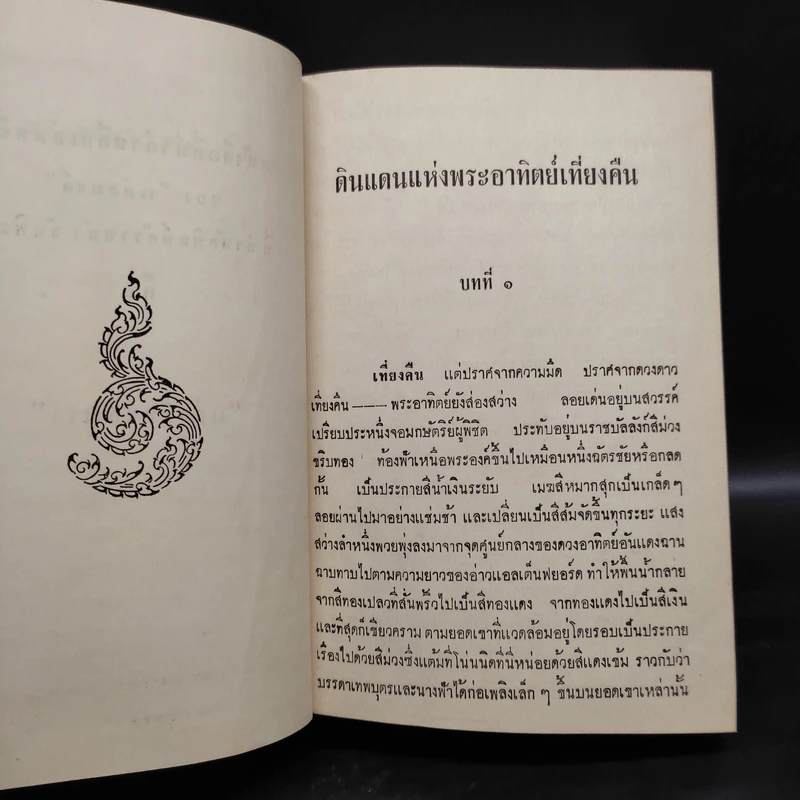 ดินแดนแห่งพระอาทิตย์เที่ยงคืน
บทที่ ๑
เที่ยงคืน แต่ปราศจากความมืด ปราศจากดวงดาว
เที่ยงคืน ——— พระอาทิตย์ยังส่องสว่าง ลอยเด่นอยู่บนสวรรค์
เปรียบประหนึ่งจอมกษัตริย์ผู้พิชิต ประทับอยู่บนราชบัลลังก์สีม่วง
ขริบทอง ท้องฟ้าเหนือพระองค์ขึ้นไปเหมือนหนึ่งฉัตรชัยหรือกลด
กั้น เป็นประกายสีน้ำเงินระยับ เมฆสีหมากสุกเป็นเกล็ดๆ
ลอยผ่านไปมาอย่างแช่มช้า และเปลี่ยนเป็นสีส้มจัดขึ้นทุกระยะ แสง
สว่างลำหนึ่งพวยพุ่งลงมาจากจุดศูนย์กลางของดวงอาทิตย์อันแดงฉาน
ฉาบทาบไปตามความยาวของอ่าวแอลเต็นฟยอร์ด ทำให้พื้นน้ำกลาย
จากสีทองเปลวที่สั่นพริ้วไปเป็นสีทองแดง จากทองแดงไปเป็นสีเงิน
และที่สุดก็เขียวคราม ตามยอดเขาที่แวดล้อมอยู่โดยรอบเป็นประกาย
เรื่องไปด้วยสีม่วงซึ่งแต้มที่โน่นนิดที่นี่หน่อยด้วยสีแดงเข้ม ราวกับว่า
บรรดาเทพบุตรและนางฟ้าได้ก่อเพลิงเล็ก ๆ ขึ้นบนยอดเขาเหล่านั้น